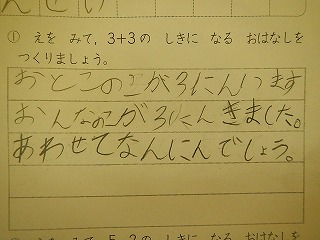 んせい
① えを みて，3+3の しきに なる おはなしを
つくりましょう。
おとこのこが3にんいます
おんなのこが3にんきました。
あわせてなんにんでしょう。
えを みて，5-2の しきに なる おはなしを